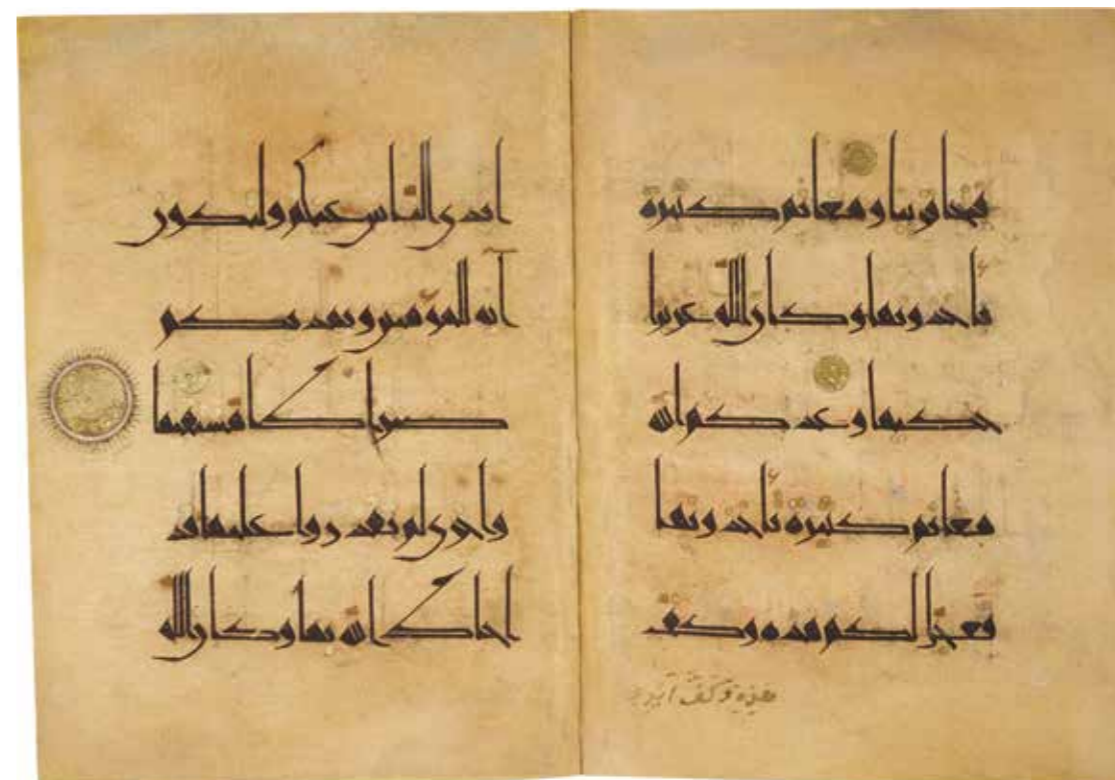 فتحا قريبا ومغانم كثيرة
يأخذونها وكان الله عزيزا
حكيما وعدكم الله
مغانم كثيرة تأخذونها
فعجل لكم هذه وكف
هذه وكف ايدي
ايدي الناس عنكم ولتكون
آية للمؤمنين ويهديكم
صراطا مستقيما
واخرى لم تقدروا عليها قد
احاط الله بها وكان الله